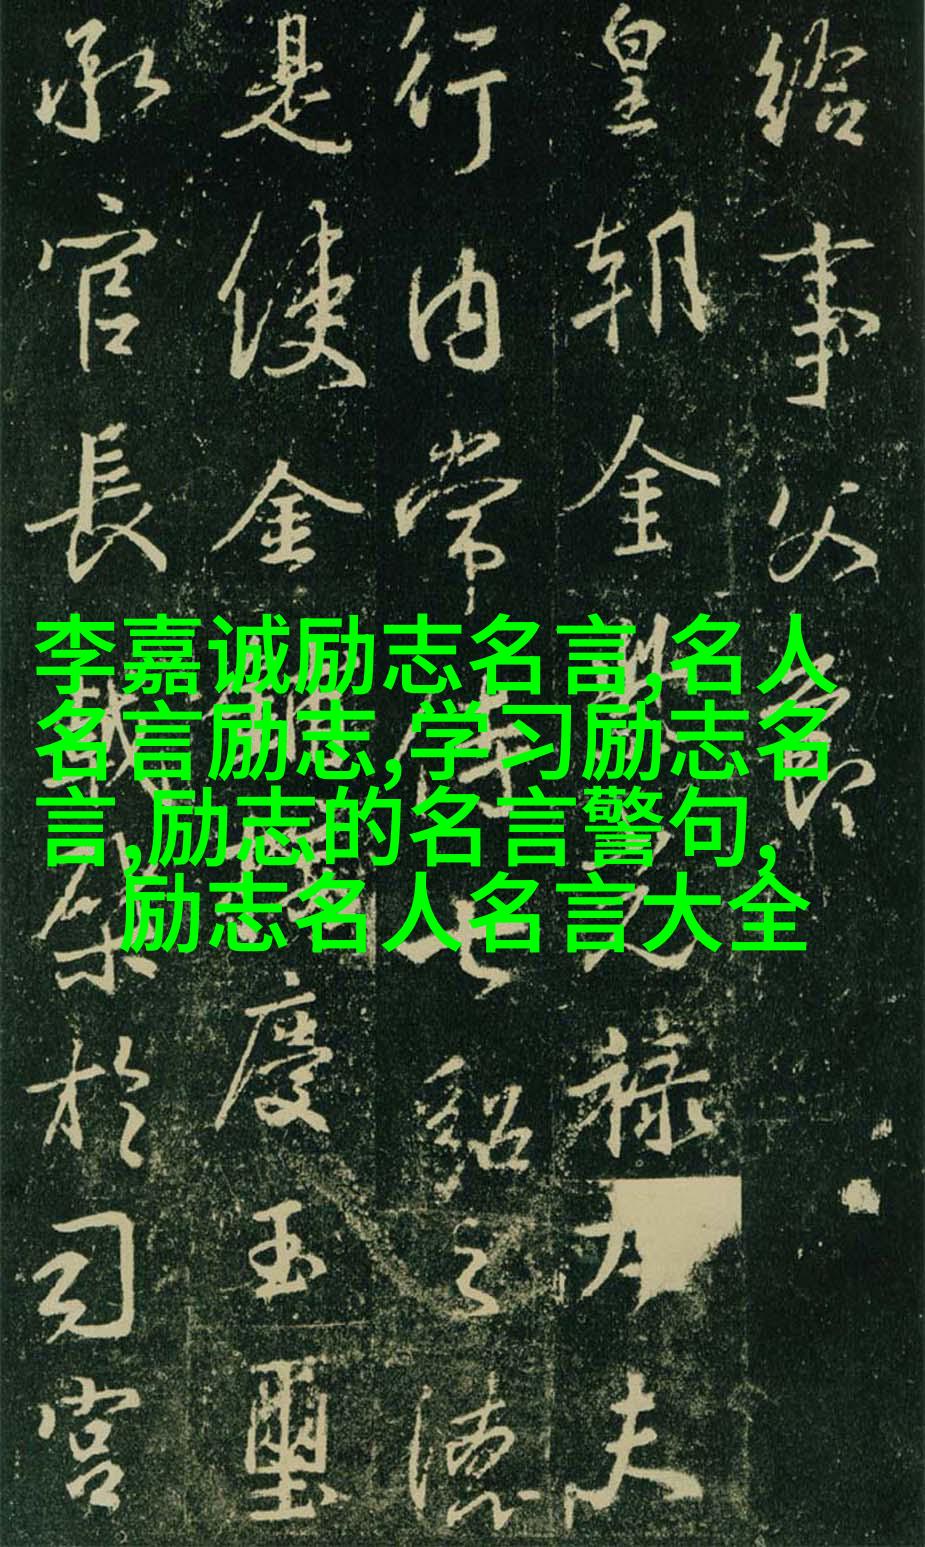 給事父
皇朝金紫光祿大夫
行內常侍七貂之德
是使金慶玉璽
承官長於司宮
李嘉诚励志名言,名人
名言励志,学习励志名
言,励志的名言警句,
励志名人名言大全